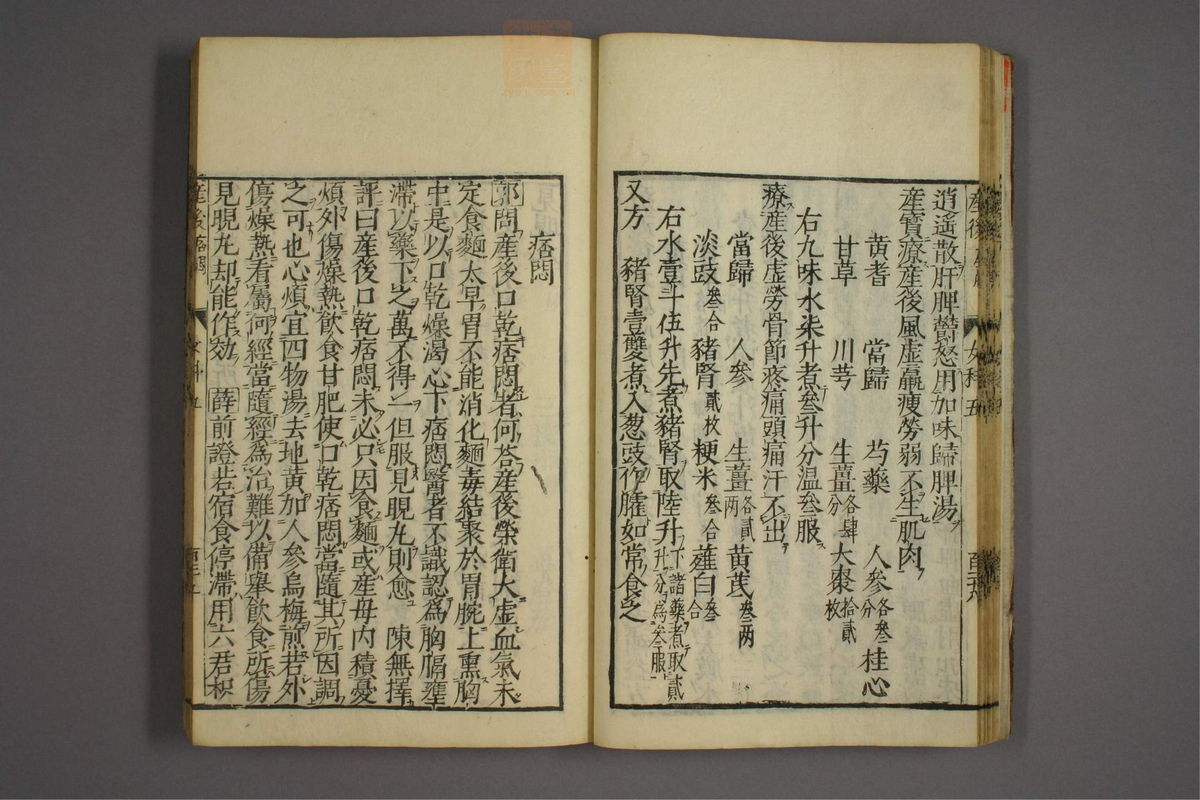 逍遙散肝脾鬱怒用加味歸脾湯
産寶療産後風虛羸瘦勞弱不生肌肉
黄耆 當歸 芍藥 人參各叄分 桂心
甘草 川芎 生薑各肆分 大棗拾貳枚
右九味水柒升煮叄升分温叄服
療産後虛勞骨節疼痛頭痛汗不出
當歸 人參 生薑各貳两 黄芪叄两
淡豉叄合 豬腎貳枚 粳米叄合 薤白叄合
右水壹斗伍升先煮豬腎取陸升下諸藥煮取貳升分爲叄服
又方 豬腎壹雙煮入葱豉作臛如常食之
女科五
痞悶
郭問産後口乾痞悶者何荅産後榮衛大虛血氣未
定食麵太早胃不能消化麵毒結聚於胃脘上熏胸
中是以口乾燥渴心下痞悶醫者不識認爲胸膈壅
滯以藥下之萬不得一但服見睍丸則愈 陳無擇
評曰産後口乾痞悶未必只因食麵或産母内積憂
煩外傷燥熱飲食甘肥使口乾痞悶當隨其所因調
之可也心煩宜四物湯去地黄加人參烏梅煎若外
傷燥熱看屬何經當隨經爲治難以備舉飲食所傷
見睍丸却能作効 薛前證若宿食停滯用六君枳